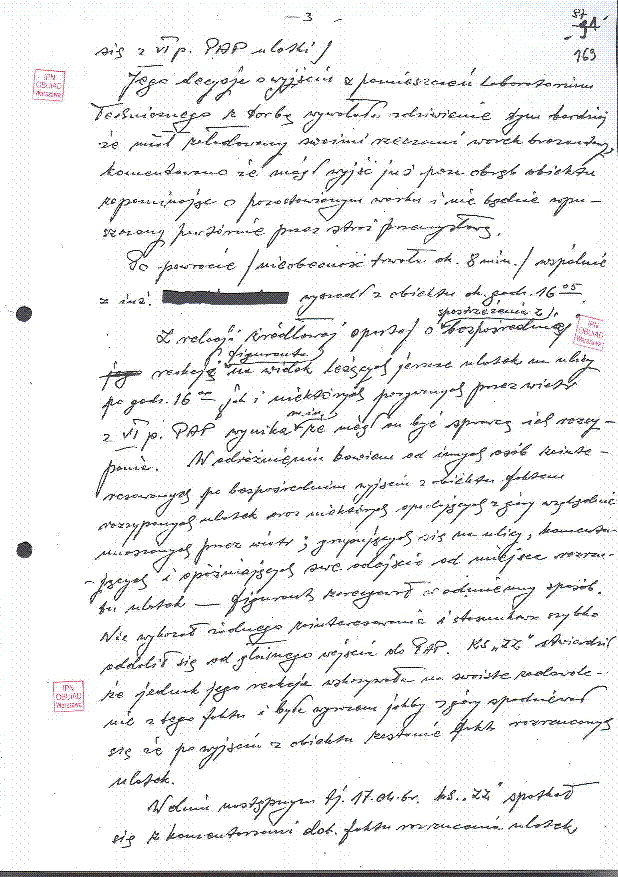 — 3 —
87
94
163
się z VI p. PAP ulotki /
IPN
OBUiAD
Warszawa
Jego decyzja o wyjściu z pomieszczeń Laboratorium
Technicznego z torbą wywołała zdziwienie tym bardziej
że miał załadowany swoimi rzeczami worek brezentowy,
komentowano że mógł wyjść już poza obręb obiektu
zapominając o pozostawionym worku i nie będzie wpu-
szczony powtórnie przez straż przemysłową.
Po powrocie / nieobecność trwała ok. 8 min. / wspólnie
z inż. wyszedł z obiektu ok. godz. 16 05.
spostrzeżenia z
Z relacji źródłowej opartej o bezpośredniej
IPN
OBUiAD
Warszawa
figuranta
jego reakcją na widok leżących jeszcze ulotek na ulicy
po godz. 16 jak i niektórych porywanych przez wiatr
m.in.
z VI p. PAP wynika że mógł on być sprawcą ich rozsy-
pania. W odróżnieniu bowiem od innych osób zainte-
resowanych po bezpośrednim wyjściu z obiektu faktem
rozsypanych ulotek oraz niektórych spadających z góry względnie
unoszonych przez wiatr; grupujących się na ulicy, komentu-
jących i opóźniających swe odejście od miejsca rozrzu-
tu ulotek — figurant zareagował w odmienny sposób.
Nie wykazał żadnego zainteresowania i stosunkowo szybko
oddalił się od głównego wejścia do PAP. KS „ZZ" stwierdził
że jednak jego reakcja wskazywała na swoiste zadowole-
IPN
OBUiAD
Warszawa
nie z tego faktu i była wyrazem jakby z góry spodziewał
się że po wyjściu z obiektu zastanie fakt rozrzuconych
ulotek.
W dniu następnym tj. 17. bm. br. KS „ZZ" spotkał
się z komentarzami dot. faktu rozrzucenia ulotek,